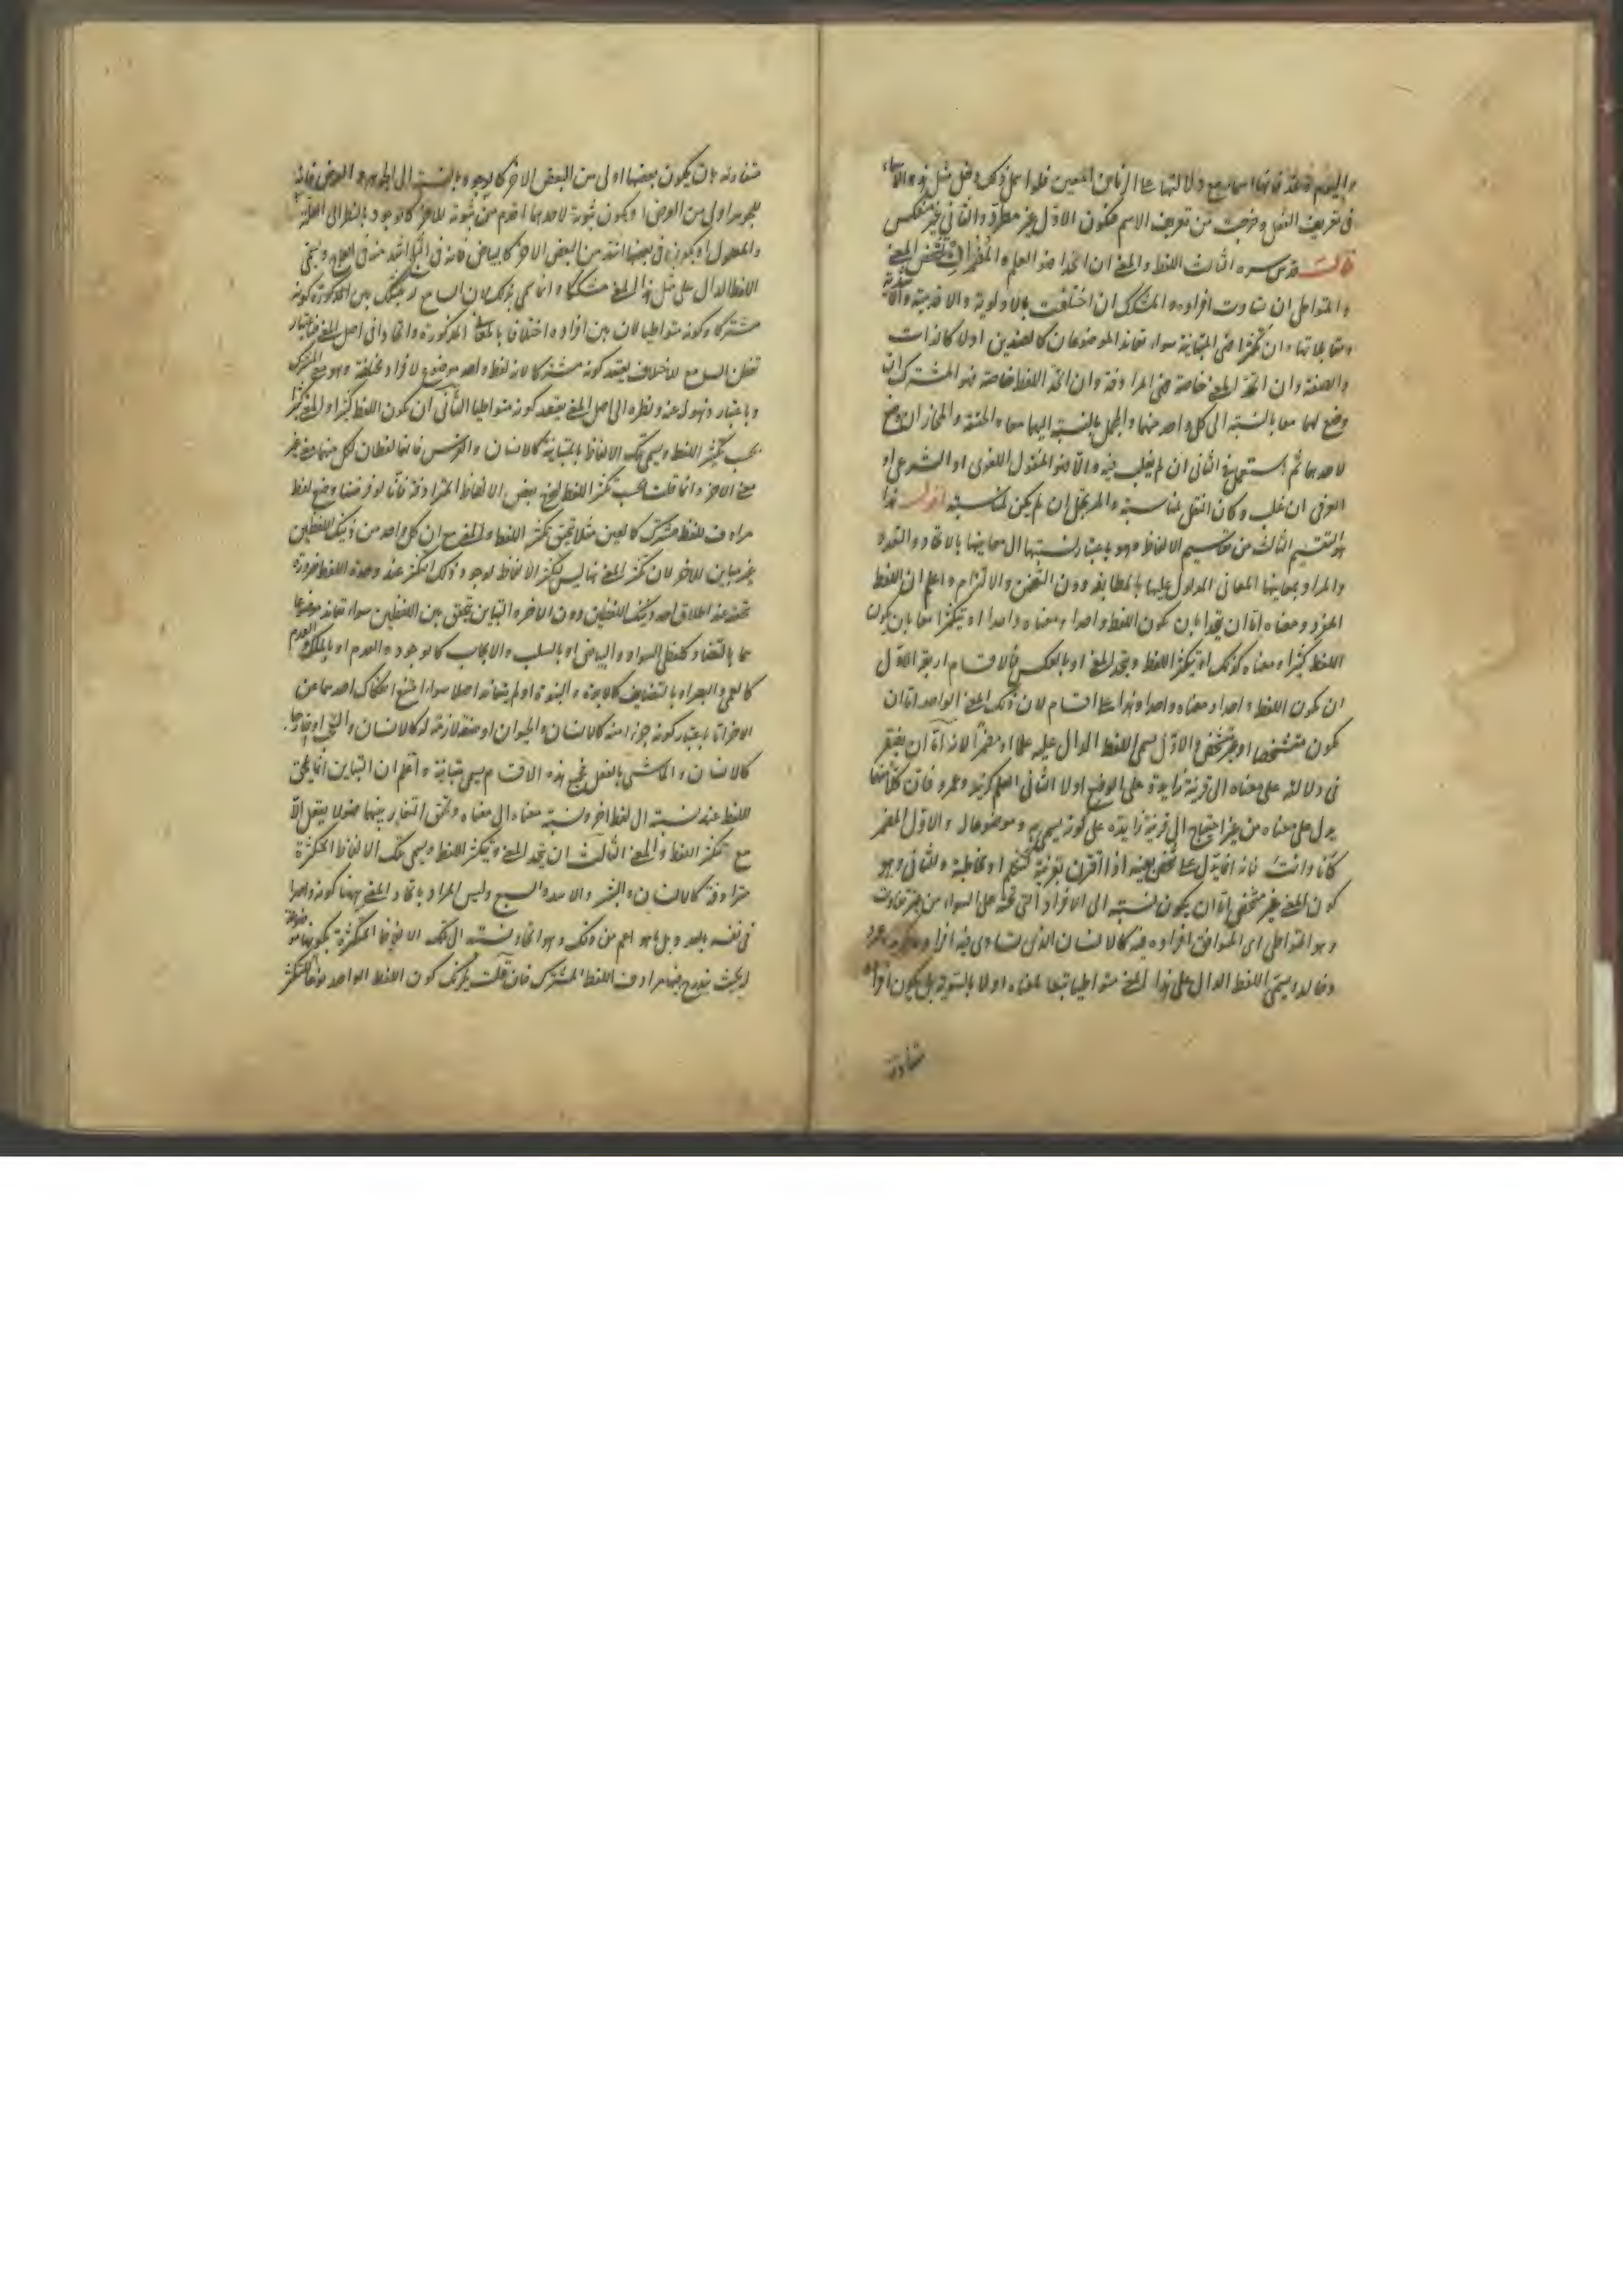 واليوم وغد فانها اسماء مع دلالتها على الزمان المعين فلو اهمل ذلك دخل مثل هذه الاسماء
فى تعريف الفعل وخرجت من تعريف الاسم فيكون الاول غير مطرد والثانى غير منعكس
قال قدس سره الثالث اللفظ والمعنى ان اتحدا فهو العلم والمضمر ان تشخص المعنى
والمتواطى ان تساوت افراده والمشكك ان اختلفت بالاولوية والاقدمية والاشدية
ومقابلاتها وان تكثرا فهى المتباينة سواء تعاند الموضوعان كالضدين اولا كالذات
والصفة وان اتحد المعنى خاصة فهى المرادفة وان اتحد اللفظ خاصة فهو المشترك ان
وضع لهما معا بالنسبة الى كل واحد منهما والمجمل بالنسبة اليهما معا والحقيقة والمجاز ان وضع
لاحدهما ثم استعمل فى الثانى ان لم يغلب فيه والا فهو المنقول اللغوى او الشرعى او
العرفى ان غلب وكان النقل لمناسبة والمرتجل ان لم يكن لمناسبة اقول هذا
هو التقسيم الثالث من تقاسيم الالفاظ وهو باعتبار نسبتها الى معانيها بالاتحاد والتعدد
والمراد بمعانيها المعانى المدلول عليها بالمطابقة دون التضمن والالتزام واعلم ان اللفظ
المفرد ومعناه اما ان يتحدا بان يكون اللفظ واحدا ومعناه واحدا او يتكثرا معا بان يكون
اللفظ كثيرا ومعناه كذلك او يتكثر اللفظ ويتحد المعنى او بالعكس فالاقسام اربعة الاول
ان يكون اللفظ واحدا ومعناه واحدا وهذا على اقسام لان ذلك المعنى الواحد اما ان
يكون متشخصا او غير متشخص والاول يسمى اللفظ الدال عليه علما او مضمرا لانه اما ان يفتقر
فى دلالته على معناه الى قرينة زايدة على الوضع اولا الثانى العلم كزيد وعمرو فان كلا منهما
يدل على معناه من غير احتياج الى قرينة زايدة على كونه يسمى به وموضوعا له والاول المضمر
كانا وانت فانه انما يدل على شخص بعينه اذا اقترن بقرينة كتكلم او مخاطبة والثانى وهو
كون المعنى غير متشخص اما ان يكون نسبته الى الافراد التى تحته على السواء من غير تفاوت
وهو المتواطى اى المتوافق افراده فيه كالانسان الذى تساوى فيه افراده وعمرو
وخالد ويسمى اللفظ الدال على هذا المعنى متواطيا تبعا لمعناه اولا بالسوية بل يكون افراده
متفاوتة
متفاوتة بان يكون بعضها اولى من البعض الاخر كالوجود بالنسبة الى الجوهر والعرض فانه
للجوهر اولى من العرض او يكون ثبوته لاحدهما اقدم من ثبوته للاخر كالوجود بالنظر الى العلة
والمعلول او يكون فى بعضها اشد من البعض الاخر كالبياض فانه فى الثلج اشد منه فى العاج ويسمى
اللفظ الدال على مثل هذا المعنى مشككا وانما سمى بذلك لان السامع له يتشكك بين كونه
مشتركا وكونه متواطيا لان بين افراده اختلافا بالمعانى المذكورة واتحادا فى اصل المعنى فباعتبار
تفطن السامع للاختلاف يعتقد كونه مشتركا لانه لفظ واحد موضوع لافراد مختلفة وهو معنى المشترك
وباعتبار ذهوله عنه ونظره الى اصل المعنى يعتقد كونه متواطيا الثانى ان يكون اللفظ كثيرا والمعنى كثيرا
بحسب تكثر اللفظ ويسمى تلك الالفاظ بالمتباينة كالانسان والفرس فانهما لفظان لكل منهما معنى غير
معنى الاخر وانما قلت بحسب تكثر اللفظ ليخرج بعض الالفاظ المترادفة فانا لو فرضنا وضع لفظ
مرادف للفظ مشترك كالعين مثلا تحقق تكثر اللفظ والمعنى مع ان كل واحد من ذينك اللفظين
غير مباين للاخر لان تكثر المعنى هنا ليس لتكثر الالفاظ لوجود ذلك التكثر عند وحدة اللفظ ضرورة
تحققه عند اطلاق احد ذينك اللفظين دون الاخر والتباين يتحقق بين اللفظين سواء تعاند موضوعا
هما بالتضاد كلفظى السواد والبياض او بالسلب والايجاب كالوجود والعدم او بالملكة والعدم
كالعمى والبصر او بالتضايف كالابوة والبنوة او لم يتعاندا اصلا سواء امتنع انفكاك احدهما عن
الاخر اما باعتبار كونه جزءا منه كالانسان والحيوان او صفة لازمة له كالانسان و
كالانسان والماشى بالفعل فجميع هذه الاقسام يسمى متباينة واعلم ان التباين انما يلحق
اللفظ عند نسبته الى لفظ اخر ونسبة معناه الى معناه وتحقق التغاير بينهما فهو لا يعقل الا
مع تكثر اللفظ والمعنى الثالث ان يتحد المعنى ويتكثر اللفظ ويسمى تلك الالفاظ المتكثرة
مترادفة كالانسان والبشر والاسد والسبع وليس المراد باتحاد المعنى ههنا كونه واحدا
فى نفسه بل ما هو اعم من ذلك وهو اتحاد نسبته الى تلك الالفاظ المتكثرة بكونها موضوعة
له بحيث يندرج فيها مرادف اللفظ المشترك فان قلت يلزمك كون اللفظ الواحد